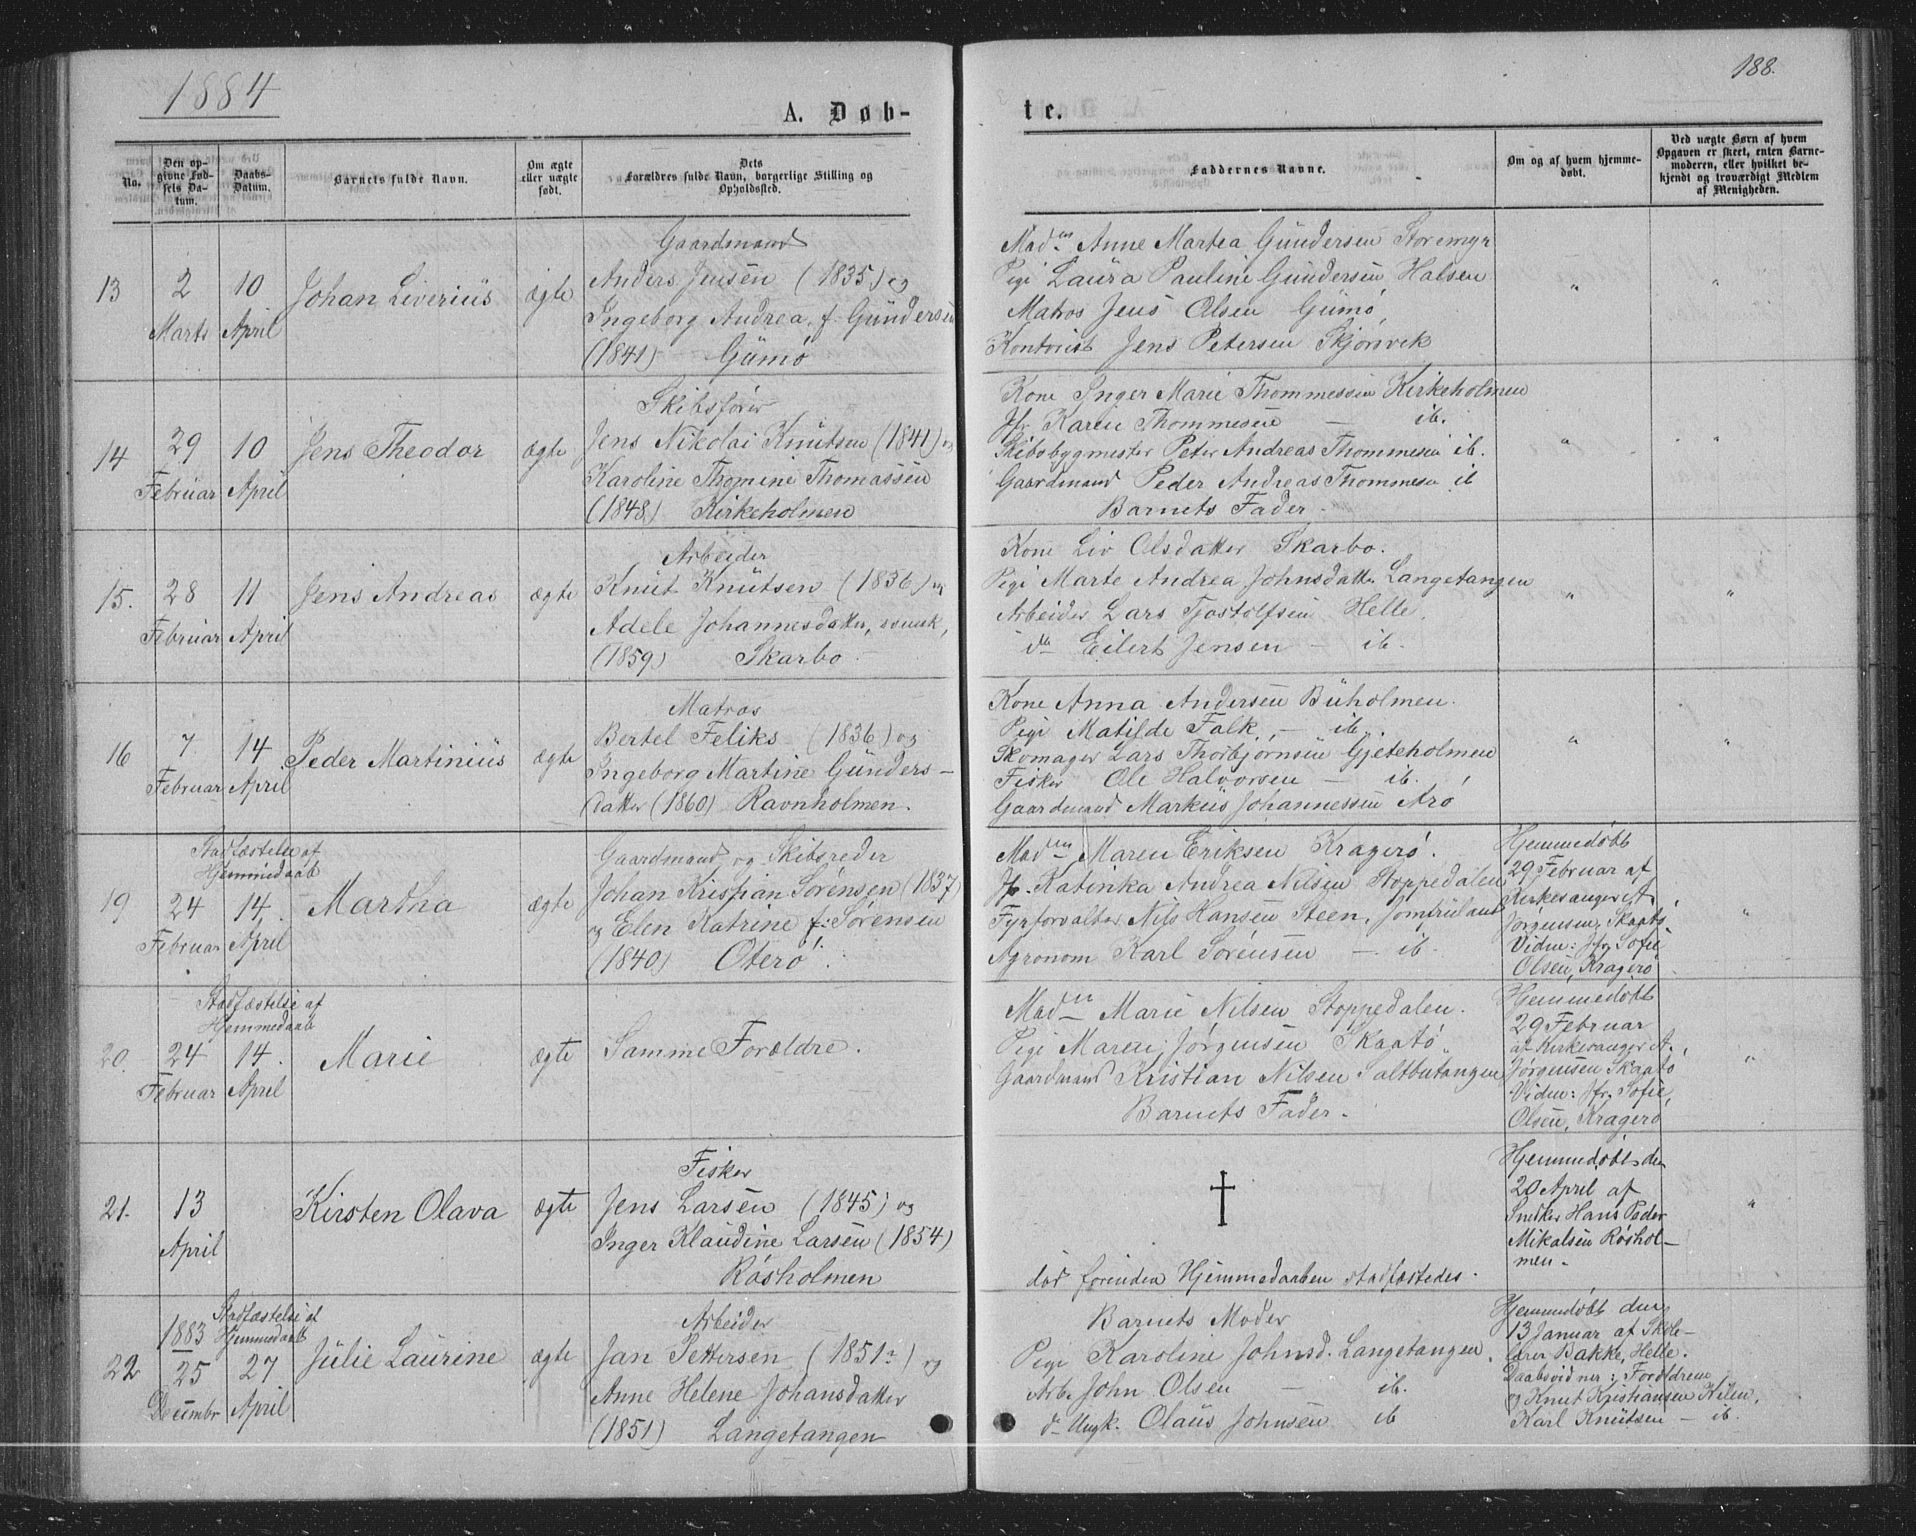 1884
188.
A. Døb-
te.
No.
Den op-
givne Fød-
sels Da-
tum.
Daabs-
Datum.
Barnets fulde Navn.
Om ægte
eller uægte
født.
Dets
Forældres fulde Navn, borgerlige Stilling og
Opholdssted.
Faddernes Navne.
Om og af hvem hjemme-
døbt.
Ved uægte Børn af hvem
Opgaven er skeet, enten Barne-
moderen, eller hvilket be-
kjendt og troværdigt Medlem
af Menigheden.
13
2
Marts
10
April
Johan Liverius
ægte
Gaardmand
Anders Jensen (1835) og
Ingeborg Andrea, f. Gundersen
(1841) Gumø
Madm Anne Martea Gundersen Storemyr
Pige Laura Pauline Gundersen, Halsen
Matros Jens Olsen Gumø,
Kontorist Jens Petersen Skjørsvik
"
"
14
29
Februar
10
April
Jens Theodor
ægte
Skibsfører
Jens Nikolai Knutsen (1841) og
Karoline Thomine Thomassen
(1848) Kirkeholmen
Kone Inger Marie Thommessen Kirkeholmen
Jfr Karen Thommesen — ib.
Skibsbygmester Peter Andreas Thommesen ib.
Gaardmand Peder Andreas Thommesen ib
Barnets Fader.
"
"
15.
28
Februar
11
April
Jens Andreas
ægte
Arbeider
Knut Knutsen (1856) og
Adele Johannesdatter, svensk,
(1859) Skarbo.
Kone Liv Olsdatter Skarbo.
Pige Marte Andrea Johnsdatter Langetangen
Arbeider Lars Tjostolfsen Helle.
do Eilert Jensen — ib.
"
"
16
7
Februar
14
April
Peder Martinius
ægte
Matros
Bertel Feliks (1836) og
Ingeborg Martine Gunders-
datter (1860) Ravnholmen.
Kone Anna Andersen Buholmen.
Pige Matilde Falk, — ib.
Skomager Lars Thorbjørnsen Gjeteholmen
Fisker Ole Halvorsen — ib.
Gaardmand Markus Johannessen Arø
"
"
19
Stadfæstelse af
Hjemmedaab
24
Februar
14.
April
Martha
ægte
Gaardmand og Skibsreder
Johan Kristian Sørensen (1837)
og Elen Katrine f. Sørensen
(1840) Oterø.
Madm Maren Eriksen Kragerø.
Jfr. Katinka Andrea Nilsen Stoppedalen
Fyrforvalter Nils Hansen Steen, Jomfruland
Agronom Karl Sørensen — ib.
Hjemmedøbt
29 Februar af
Kirkesanger A.
Jørgensen, Skaatø
Vidn: Jfr Sofie
Olsen, Kragerø
"
20.
Stadfæstelse af
Hjemmedaab
24
Februar
14.
April
Marie
ægte
Samme Forældre.
Madm Marie Nilsen Stoppedalen.
Pige Maren Jørgensen Skaatø.
Gaardmand Kristian Nilsen Saltbutangen
Barnets Fader.
Hjemmedøbt
29 Februar
af Kirkesanger A.
Jørgensen Skaatø
Vidn: Jfr. Sofie,
Olsen, Kragerø
"
21.
13
April
Kirsten Olava
ægte
Fisker
Jens Larsen (1845) og
Inger Klaudine Larsen (1854)
Røsholmen
†
død forinden Hjemmedaaben stadfæstedes.
Hjemmedøbt den
20 April af
Snedker Hans Peder
Mikalsen Røshol-
men.
"
22
1883
25
Decembr
Stadfæstelse af
Hjemmedaab
27
April
Julie Laurine
ægte
Arbeider
Jan Pettersen (1851) og
Anne Helene Johansdatter
(1851) Langetangen
Barnets Moder
Pige Karoline Johnsd. Langetangen.
Arb. John Olsen — ib.
do Ungk. Olaus Johnsen ib
Hjemmedøbt den
13 Januar af Skole-
lærer Bakke, Helle.
Daabsvidner: Forældrene
og Knut Kristiansen Kilen,
Karl Knutsen — ib.